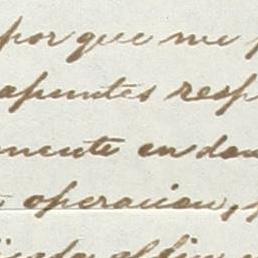 por que me
apuntes resp
mente en dan
operacion,
al fin